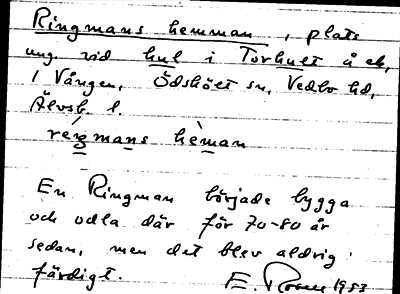 Ringmans hemman, plats
ung. vid hul i Torhult å ek,
1 Vången, Ödskölt sn, Vedbo hd,
Älvsb. l.
réŋmans hèman
En Ringman började bygga
och odla där för 70-80 år
sedan, men det blev aldrig
färdigt. E. 1953